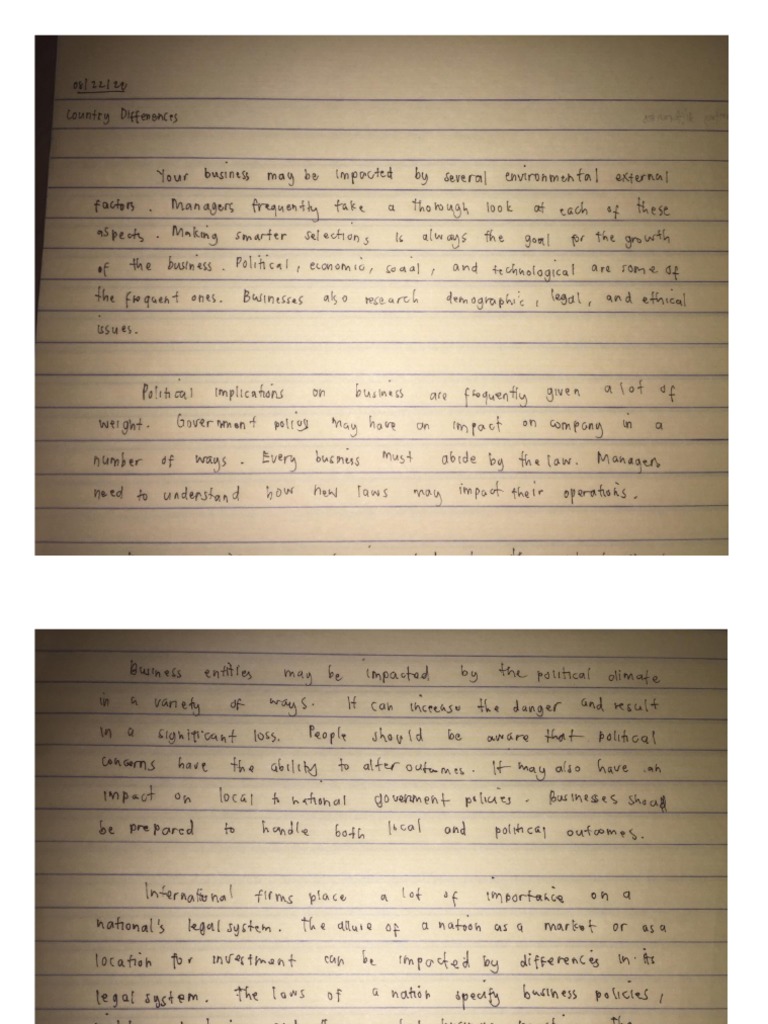 08/22/22
Country Differences
Your business may be impacted by several environmental external
factors. Managers frequently take a thorough look at each of these
aspects. Making smarter selections is always the goal for the growth
of the business. Political, economic, social, and technological are some of
the frequent ones. Businesses also research demographic, legal, and ethical
issues.
Political implications on business are frequently given a lot of
weight. Government may have an impact on company in a
number of ways. Every business must abide by the law. Managers
need to understand how new laws may impact their operations.
Business entitles may be impacted by the political olimate
in a variety of ways. It can increase the danger and result
in a significant loss. People should be aware that political
concerns have the ability to alter outcomes. It may also have an
impact on local to national government policies. Businesses should
be prepared to handle both local and political outcomes.
International firms place a lot of importance on a
national's legal system. The allure of a nation as a market or as a
location for investment can be impacted by differences in its
legal system. The laws of a nation specify business policies,